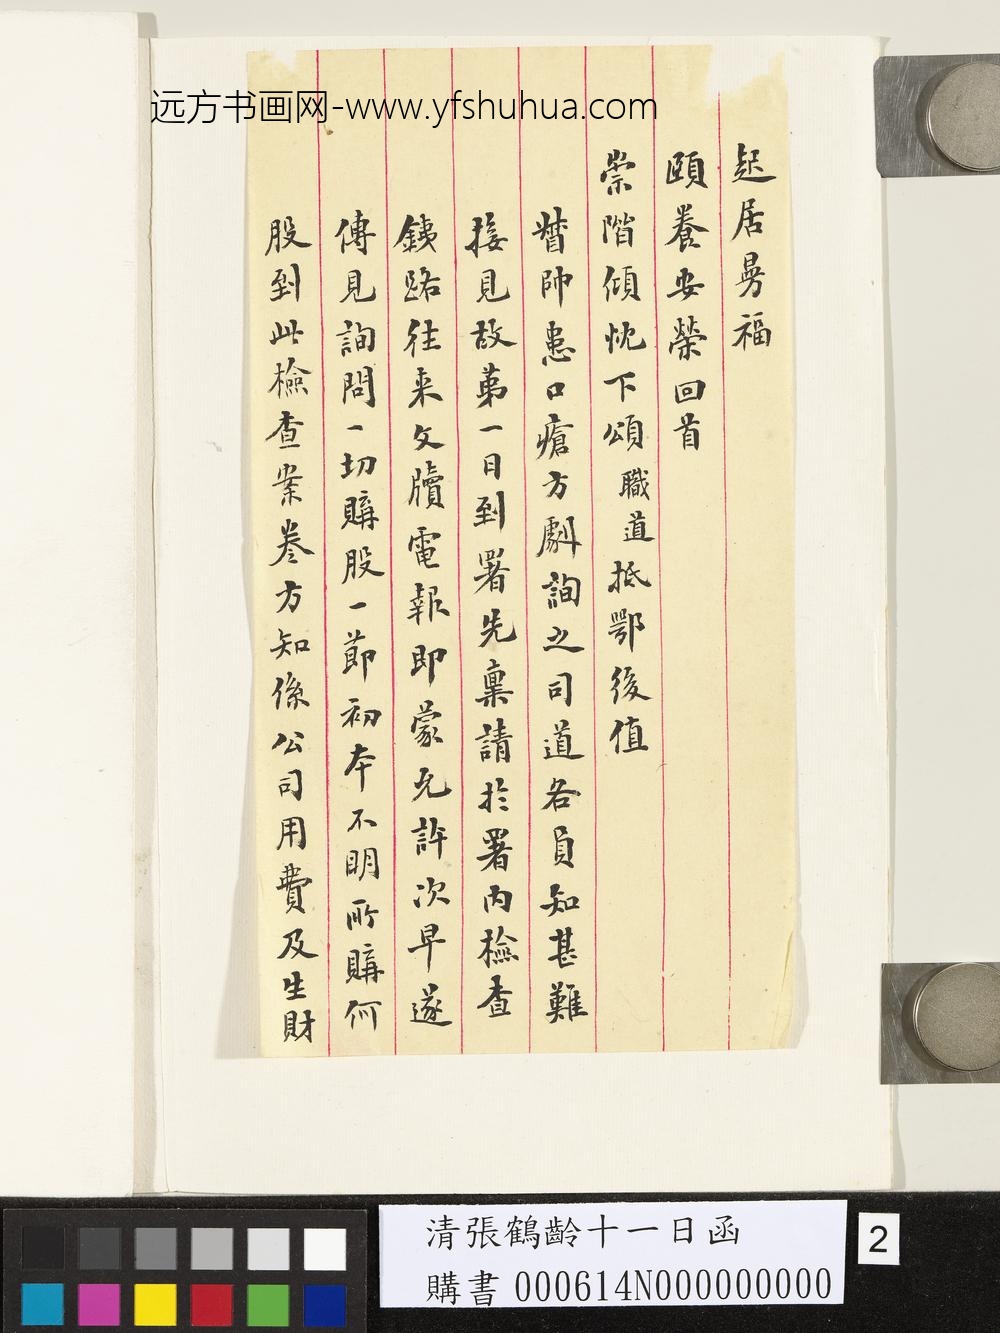 远方书画网-www.yfshuhua.com
起居曼福
頤養安榮回首
崇階傾忱下頌職道抵鄂後值
督帥患口瘡方劇詢之司道各員知甚難
接見故第一日到署先稟請於署內檢查
鐵路往来文牘電報即蒙允許次早遂
傳見詢問一切購股一節初本不明所購何
股到此檢查案卷方知係公司用費及生財
清張鶴齡十一日函
購書 000614N000000000
2